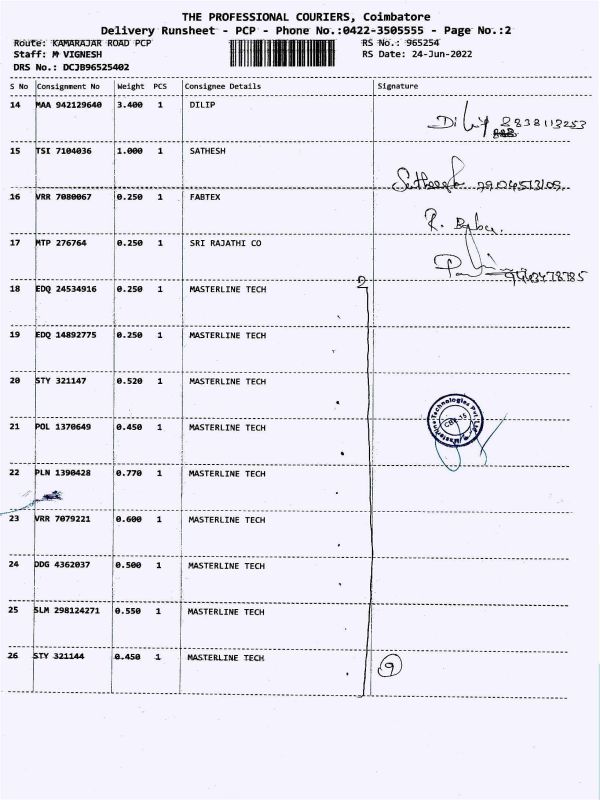 THE PROFESSIONAL COURIERS, Coimbatore
Delivery Runsheet - PCP - Phone No.:0422-3505555 - Page No.:2
Route: KAMARAJAR ROAD PCP
RS No.: 965254
Staff: M VIGNESH
RS Date: 24-Jun-2022
DRS No.: DCJB96525402
S No Consignment No Weight PCS Consignee Details Signature
14 MAA 942129640 3.400 1 DILIP Dilip
15 TSI 7104036 1.000 1 SATHESH
16 VRR 7080067 0.250 1 FABTEX R. Babu.
17 MTP 276764 0.250 1 SRI RAJATHI CO
18 EDQ 24534916 0.250 1 MASTERLINE TECH
19 EDQ 14892775 0.250 1 MASTERLINE TECH
20 STY 321147 0.520 1 MASTERLINE TECH
21 POL 1370649 0.450 1 MASTERLINE TECH Masterline Technologies Pvt. Ltd. CBE-15
22 PLN 1390428 0.770 1 MASTERLINE TECH
23 VRR 7079221 0.600 1 MASTERLINE TECH
24 DDG 4362037 0.500 1 MASTERLINE TECH
25 SLM 298124271 0.550 1 MASTERLINE TECH
26 STY 321144 0.450 1 MASTERLINE TECH 9